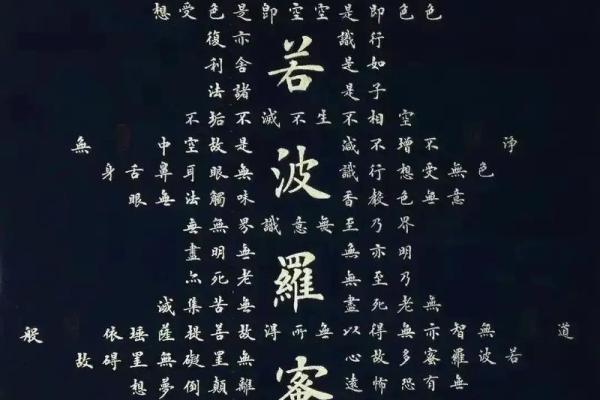 若波羅蜜
色色即是空空即是色受想
行識亦復
如是舍利
子是諸法
空相不生不滅不垢不
淨不增不滅是故空中無
色無受想行識無眼耳鼻舌身
意無色香味觸法無眼
界乃至無意識界無無
明亦無無明盡
乃至無老死亦
無老死盡無苦集滅
道無智亦無得以無所得故菩提薩埵依般
若波羅蜜多故心無罣礙無罣礙故
無有恐怖遠離顛倒夢想